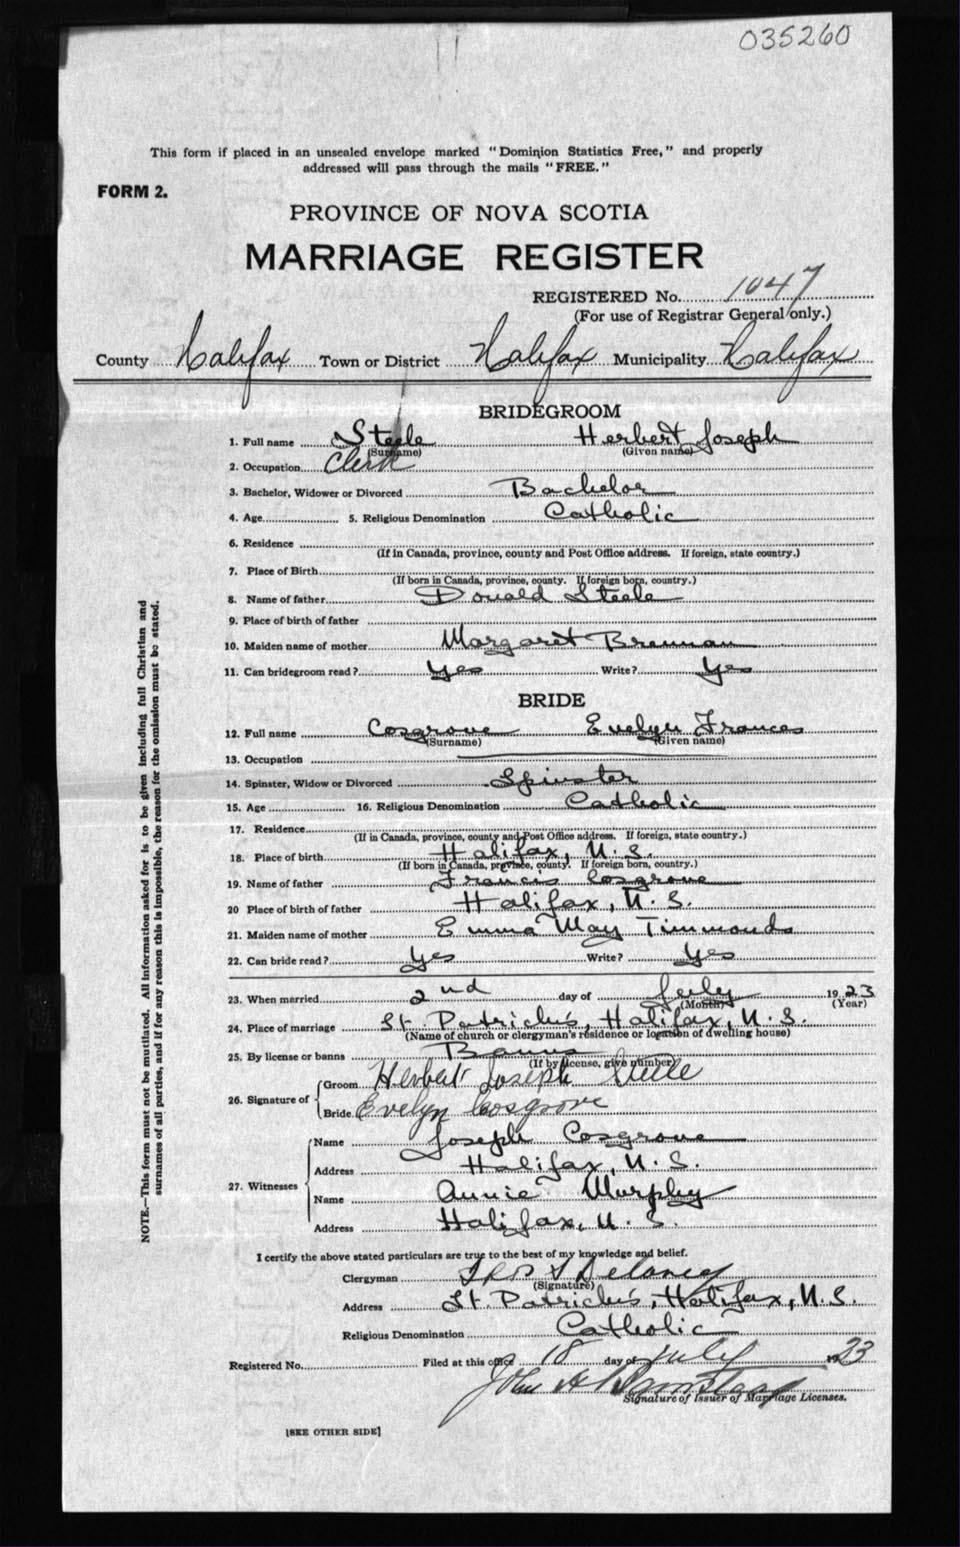 035260
This form if placed in an unsealed envelope marked "Dominion Statistics Free," and properly
addressed will pass through the mails "FREE."
FORM 2.
PROVINCE OF NOVA SCOTIA
MARRIAGE REGISTER
REGISTERED No. 1047
(For use of Registrar General only.)
County Halifax Town or District Halifax Municipality Halifax
BRIDEGROOM
1. Full name Steele Herbert Joseph
(Surname) (Given name)
2. Occupation Clerk
3. Bachelor, Widower or Divorced Bachelor
4. Age 5. Religious Denomination Catholic
6. Residence
(If in Canada, province, county and Post Office address. If foreign, state country.)
7. Place of Birth
(If born in Canada, province, county. If foreign born, country.)
8. Name of father Donald Steele
9. Place of birth of father
10. Maiden name of mother Margaret Brennan
11. Can bridegroom read? Yes Write? Yes
BRIDE
12. Full name Cosgrove Evelyn Frances
(Surname) (Given name)
13. Occupation
14. Spinster, Widow or Divorced Spinster
15. Age 16. Religious Denomination Catholic
17. Residence
(If in Canada, province, county and Post Office address. If foreign, state country.)
18. Place of birth Halifax, N. S.
(If born in Canada, province, county. If foreign born, country.)
19. Name of father Francis Cosgrove
20 Place of birth of father Halifax, N. S.
21. Maiden name of mother Emma May Timmonds
22. Can bride read? Yes Write? Yes
23. When married 2nd day of July 1923
(Month) (Year)
24. Place of marriage St. Patrick's, Halifax, N. S.
(Name of church or clergyman's residence or location of dwelling house)
25. By license or banns Banns
(If by license, give number)
26. Signature of Groom Herbert Joseph Steele
Bride Evelyn Cosgrove
27. Witnesses Name Joseph Cosgrove
Address Halifax, N. S.
Name Annie Murphy
Address Halifax, N. S.
I certify the above stated particulars are true to the best of my knowledge and belief.
Clergyman Delaney
(Signature)
Address St. Patrick's, Halifax, N. S.
Religious Denomination Catholic
Registered No. Filed at this office 18 day of July 1923
John H Barnstead
Signature of Issuer of Marriage Licenses.
[SEE OTHER SIDE]
NOTE.—This form must not be mutilated. All information asked for is to be given including full Christian and
surnames of all parties, and if for any reason this is impossible, the reason for the omission must be stated.